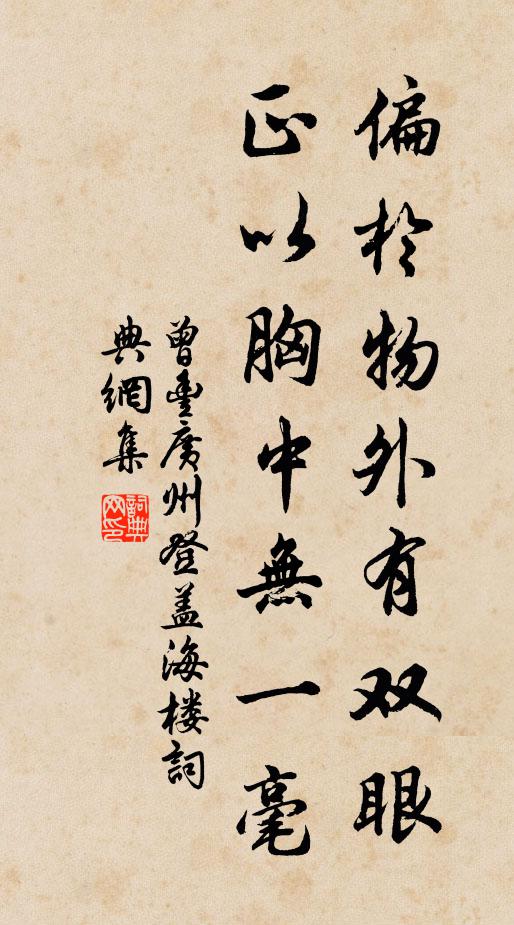 偏於物外有双眼
正以胸中無一毫
曾豊廣州登盖海楼詞
典網集
詞典
网印